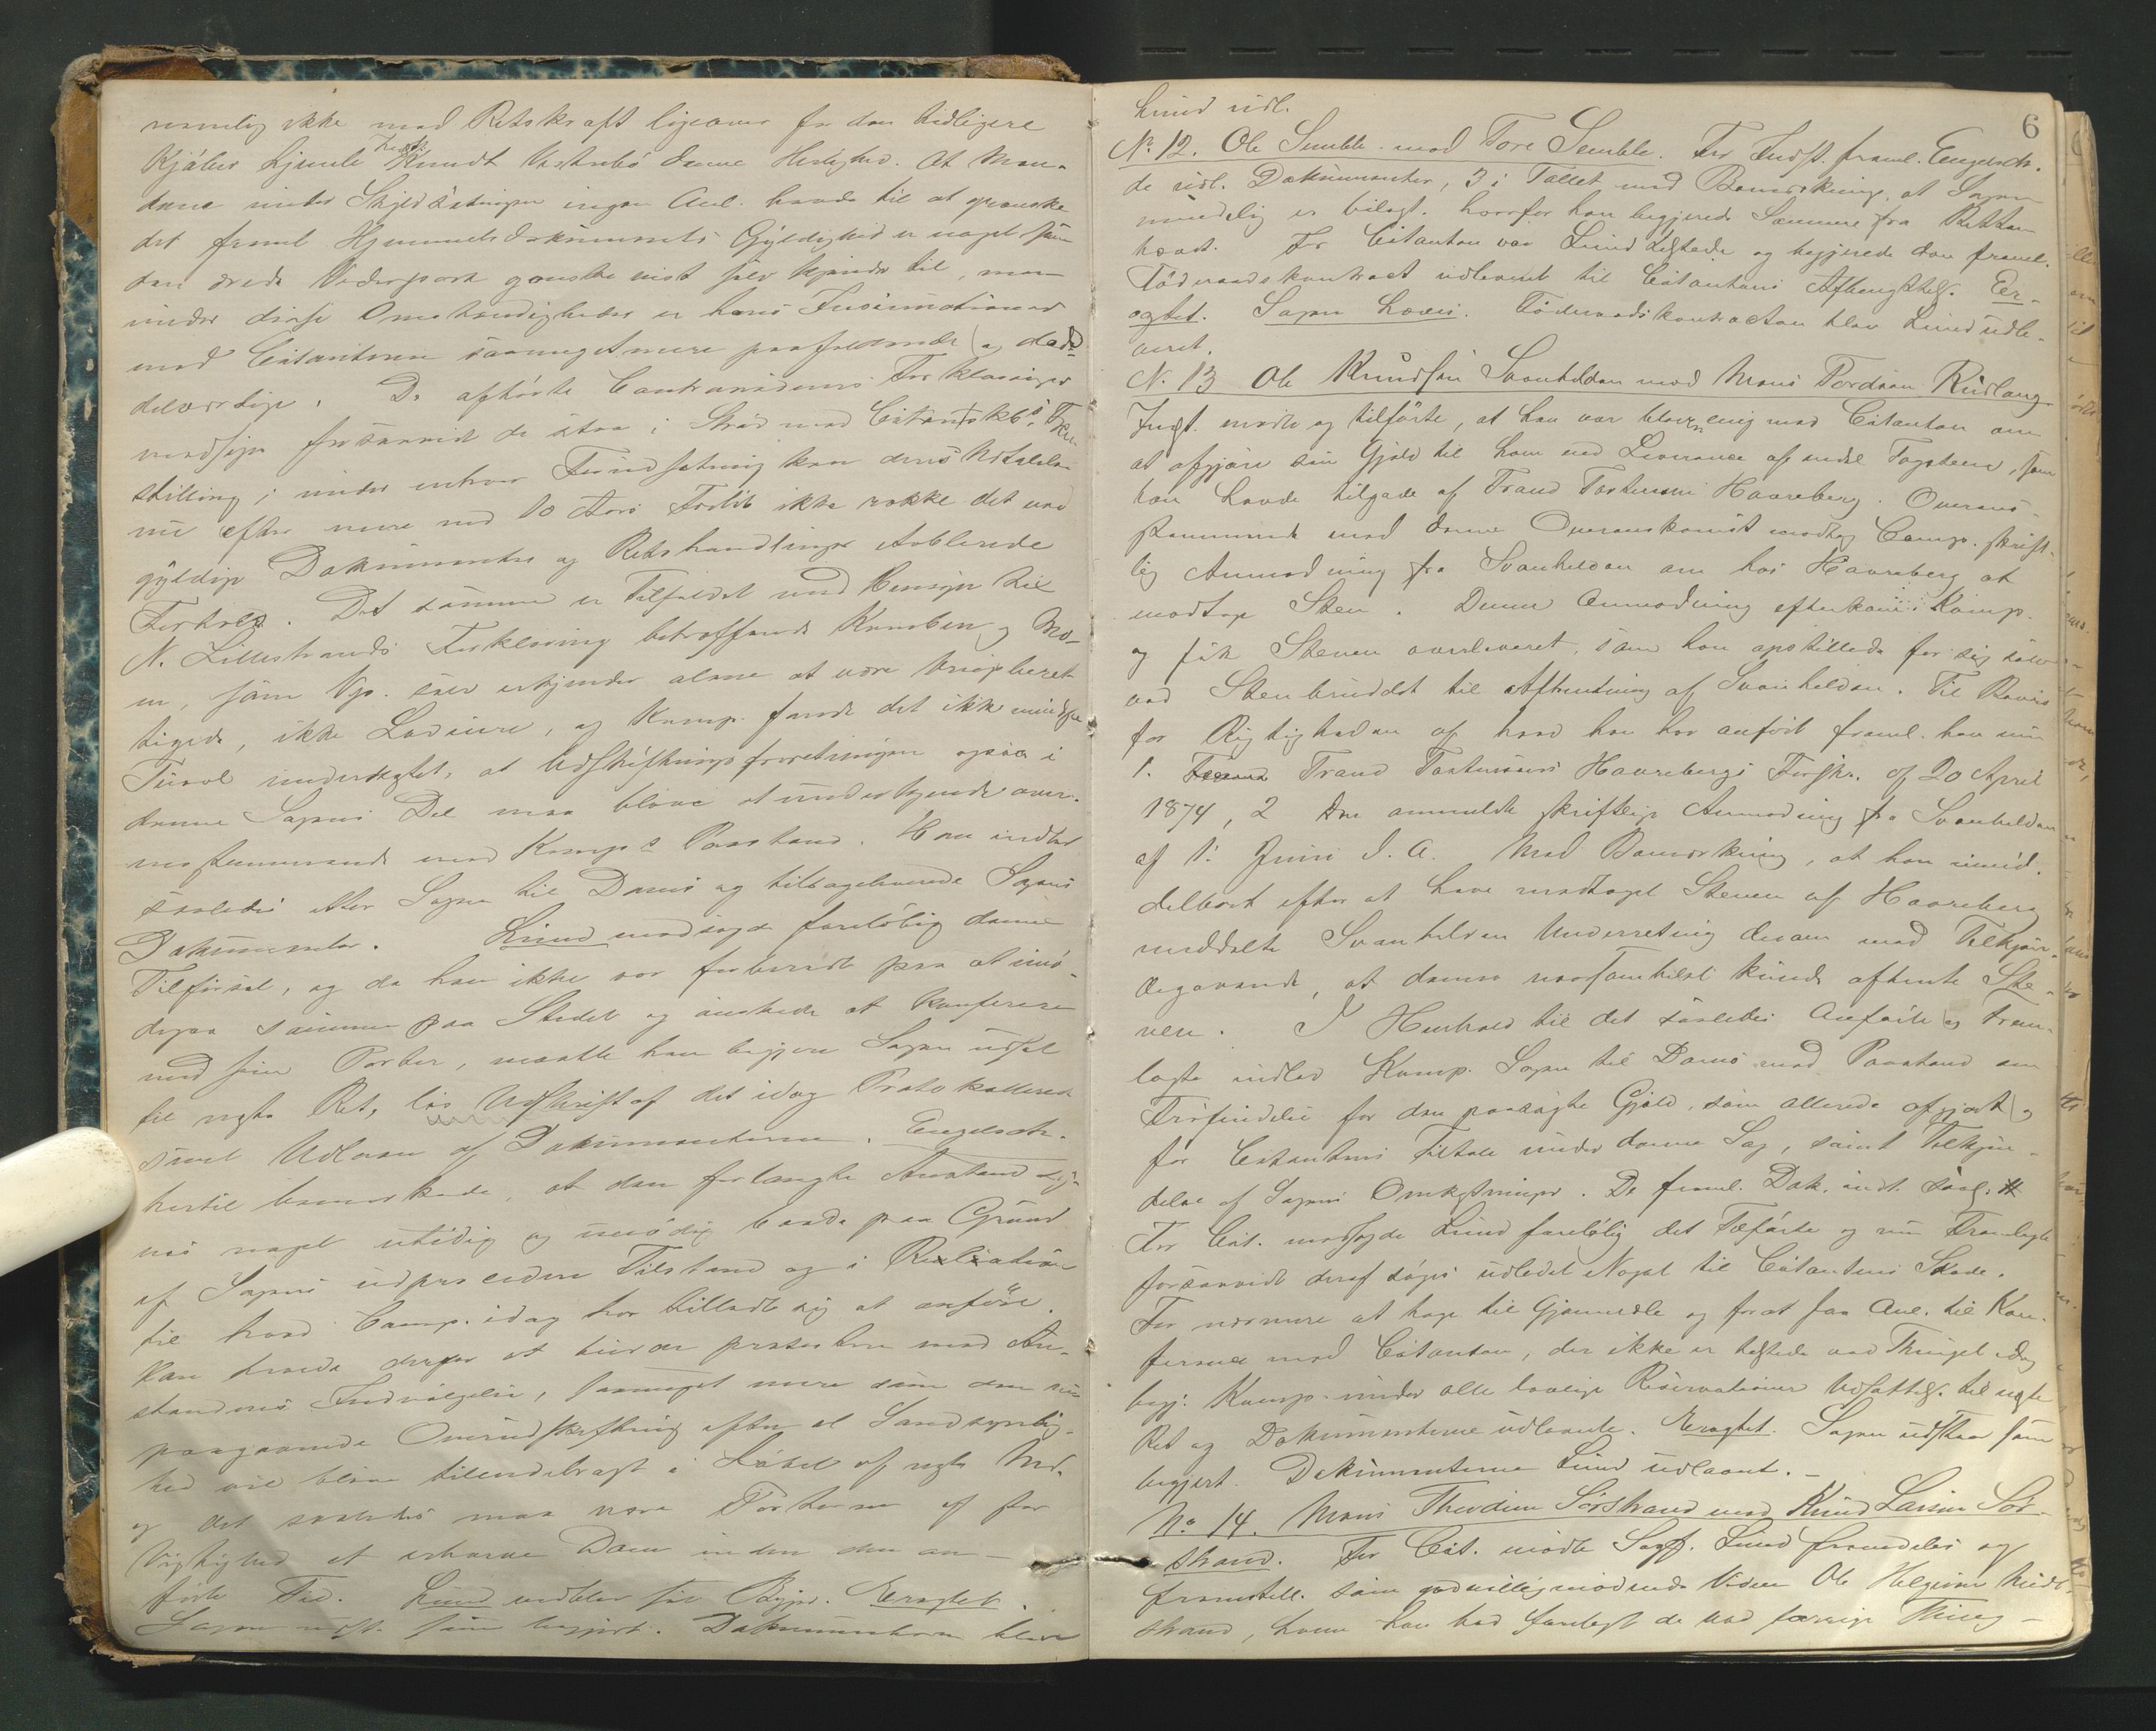 nemlig ikke med Retskraft ligeover for den tidligere
Kjøber Ljumle Knudt Vestrebø denne Herlighed. At Man-
dene under Skjelsætningen ingen Anl. havde til at granske
det freml Hjemmelsdokuments Gyldighed er noget som
den ærede Vederpart ganske vist selv kjender til, men
under disse Omstændigheder er hans Insinuationer
mod Citantinen saameget mere paafaldende og dad-
delværdige. De afhørte Contravidners Forklaringer
modsiges forsaavidt de staa i Strid med Citantskbs. Frem
stilling; under enhver Forudsætning kan deres Udtalelser
nu efter mere end 10 Aars Forløb ikke rokke det ved
gyldige Dokumenter og Retshandlinger etablerede
Forhold. Det samme er Tilfældet med Hensyn til
N. Lillestrands Forklaring betræffende
en, som Vp. selv erkjender alene at være brugsberet
tigede, ikke Lodeiere, og Komp. fandt det ikke mindste
Tvivl underkastet, at Udskiftningsforretningen ogsaa i
denne Sagens Del maa blive at underkjende over-
ensstemmende med Komps Paastand. Han indlod
saaledes atter Sagen til Doms og tilbageleverede Sagens
Dokumenter. Lund modsagde foreløbig denne
Tilførsel, og da han ikke var forberedt paa at imø-
degaa samme paa Stedet og ønskede at konferere
med sine Parter, maatte han begjære Sagen udsat
til næste Ret, løs Udskrift af det idag Protokollerede
samt Udlaan af Dokumenterne. Engelsch.
hertil bemærkede, at den forlangte Anstand
noget utidig og unødig baade paa Grund
af Sagens udprocederede Tilstand og i Relation
til hvad Comp. idag har tilladt sig at anføre.
Han troede derfor at burde protestere mod An-
standens Indvilgelse, saameget mere som den nu
paagaaende Overudskiftning efter al Sandsynlig-
hed vil blive tilendebragt i Løbet af næste Md.
og det saaledes maa være Parterne af stor
Vigtighed at erhverve Dom inden den an-
førte Tid. Lund vedblev sin Begjær. Eragtet.
Sagen uds. som begjært. Dokumenterne blev
6
Lund udl.
No 12. Ole Semble mod Tore Semble. For Indst. freml. Engelsch.
de udl. Dokumenter, 3 i Tallet med Bemærkning, at Sagen
mindelig er bilagt. hvorfor han begjerede Samme fra Retten
hævet. For Citanten var Lund tilstede og begjerede den freml.
Føderaadskontract udleveret til Citantens Afbenyttelse. Er-
agtet. Sagen hæves. Føderaadskontracten blev Lund udle-
veret.
N. 13 Ole Knudsen Svanhelden mod Mons Tordsen Rudlang
Indst. mødte og tilførte, at han var bleven enig med Citanten om
at afgjøre sin Gjæld til ham ved Leverance af endel Tagsteen, som
han havde tilgode af Trond Torstensen Haareberg. Overens-
stemmende med denne Overenskomst modtog Comp. skrift-
lig Anmodning fra Svanhelden om hos Haareberg at
modtage Sten. Denne Anmodning efterkom Komp.
og fik Stenen overleveret, som han opstillede for sig selv
ved Stenbruddet til Afhentning af Svanhelden. Til Bevis
for Rigtigheden af hvad han har anført freml. han nu
1. Trond Torstensens Haarebergs Forskr. af 20 April
1874, 2 den anmeldte skriftlige Anmodning fra Svanhelden
af 1. Juni d. A. Med Bemærkning, at han umid-
delbart efter at have modtaget Stenen af Haareberg
meddelte Svanhelden Underretning derom med Tilkjen-
degivende, at denne naarsomhelst kunde afhente Ste-
nen. I Henhold til det saaledes Anførte og Frem-
lagte indlod Komp. Sagen til Doms med Paastand om
Frifindelse for den paasøgte Gjæld, som allerede afgjort og
for Citantens Tiltale under denne Sag, samt Tilkjen-
delse af Sagens Omkostninger. De freml. Dok. indt. saal. #
For Cit. modsagde Lund foreløbig det Tilførte og nu Fremlagte
forsaavidt deraf søges udledet Noget til Citantens Skade.
For nærmere at tage til Gjenmæle og for at faa Anl. til Kon-
ference med Citanten, der ikke er tilstede ved Thinget idag
begj. Komp. under alle lovlige Reservationer Udsættelse til næste
Ret og Dokumenterne udlaante. Eragtet. Sagen udstaar som
begjert. Dokumenterne Lund udlaant. —
No 14. Mons Thordsen Sørstrand mod Knud Larsen Sør-
strand. For Cit. mødte Sagf. Lund fremdeles og
fremstill. som godvillig mødende Vidne Ole Helgesen Midt-
strand, hvem han had forelagt de ved forrige Thing-